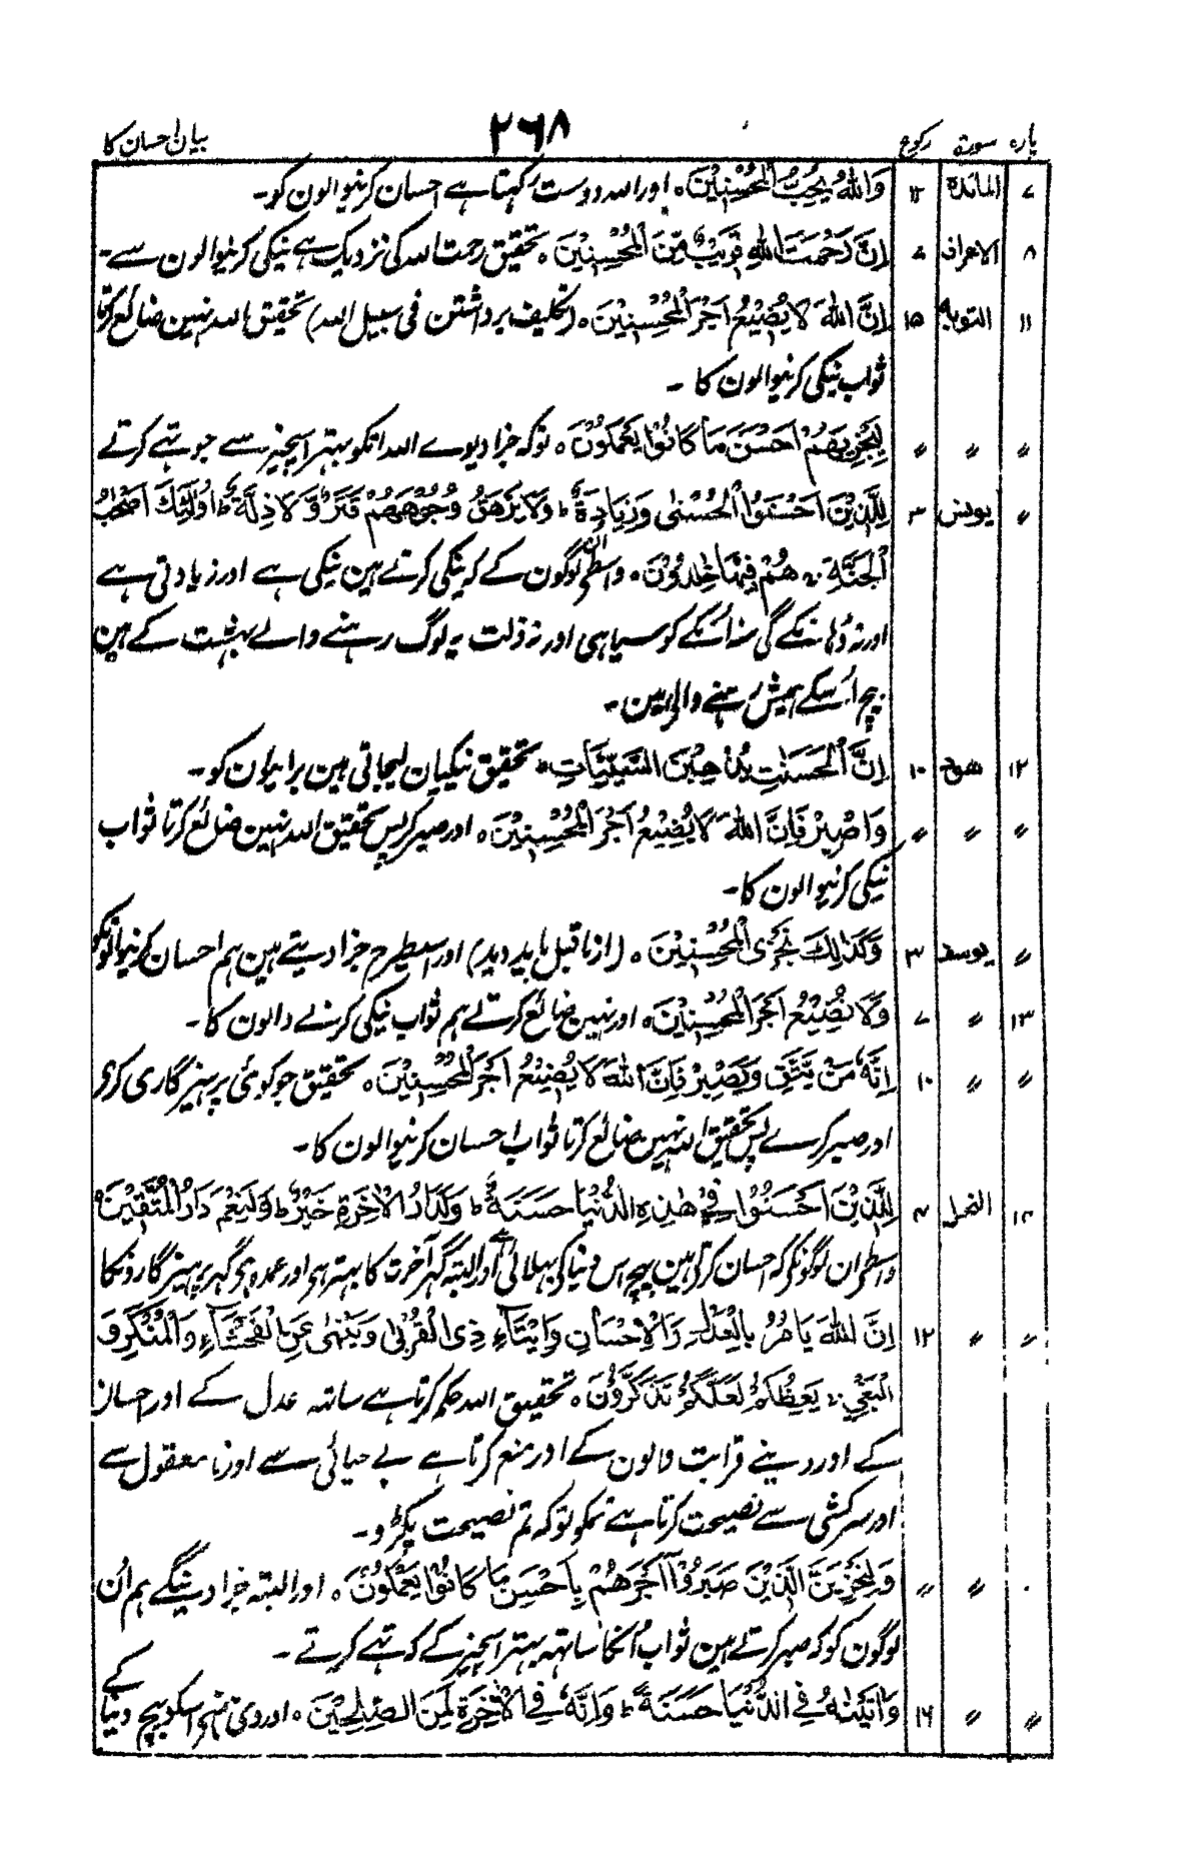 پارہ سورۃ رکوع ۲۶۸ بیان احسان کا
۷ المائدہ ۱۲ وَاللّٰهُ يُحِبُّ الْمُحْسِنِيْنَ ہ اور اللہ دوست رکہتا ہے احسان کرنیوالون کو۔
۸ الاعراف ۷ اِنَّ رَحْمَتَ اللّٰهِ قَرِيْبٌ مِّنَ الْمُحْسِنِيْنَ ہ تحقیق رحمت اللہ کی نزدیک ہے نیکی کرنیوالون سے۔
۱۱ التوبہ ۱۵ اِنَّ اللّٰهَ لَا يُضِيْعُ اَجْرَ الْمُحْسِنِيْنَ ہ (تکلیف برداشتن فی سبیل اللہ) تحقیق اللہ نہین ضائع کرتا
ثواب نیکی کرنیوالون کا ۔
〃 〃 〃 لِيَجْزِيَهُمْ اَحْسَنَ مَا كَانُوْا يَعْمَلُوْنَ ہ توکہ جزا دیوے اللہ انکو بہتر اسچیز سے جو تہے کرتے
〃 یونس ۳ لِلَّذِيْنَ اَحْسَنُوا الْحُسْنٰى وَزِيَادَةٌ ط وَلَا يَرْهَقُ وُجُوْهَهُمْ قَتَرٌ وَّلَا ذِلَّةٌ ط اُولٰٓئِكَ اَصْحٰبُ
الْجَنَّةِ ۚ هُمْ فِيْهَا خٰلِدُوْنَ ہ واسطے ان لوگون کے کہ نیکی کرتے ہین نیکی ہے اور زیادتی ہے
اور نہ ڈہانکے گی منہ اُنکے کو سیاہی اور نہ ذلت یہ لوگ رہنے والے بہشت کے ہین
بیچ اُسکے ہمیش رہنے والی ہین۔
۱۲ ھود ۱۰ اِنَّ الْحَسَنٰتِ يُذْهِبْنَ السَّيِّاٰتِ ہ تحقیق نیکیان لیجاتی ہین برائیون کو۔
〃 〃 〃 وَاصْبِرْ فَاِنَّ اللّٰهَ لَا يُضِيْعُ اَجْرَ الْمُحْسِنِيْنَ ہ اور صبر کر پس تحقیق اللہ نہین ضائع کرتا ثواب
نیکی کرنیوالون کا۔
〃 یوسف ۳ وَكَذٰلِكَ نَجْزِى الْمُحْسِنِيْنَ ہ (از ماقبل باید دید) اور اسیطرح جزا دیتے ہین ہم احسان کرنیوالونکو
۱۳ 〃 ۷ وَلَا نُضِيْعُ اَجْرَ الْمُحْسِنِيْنَ ہ اور نہین ضائع کرتے ہم ثواب نیکی کرنے والون کا۔
〃 〃 ۱۰ اِنَّهٗ مَنْ يَّتَّقِ وَيَصْبِرْ فَاِنَّ اللّٰهَ لَا يُضِيْعُ اَجْرَ الْمُحْسِنِيْنَ ہ تحقیق جو کوئی پرہیزگاری کرے
اور صبر کرے پس تحقیق اللہ نہین ضائع کرتا ثواب احسان کرنیوالون کا۔
۱۴ النحل ۴ لِلَّذِيْنَ اَحْسَنُوْا فِىْ هٰذِهِ الدُّنْيَا حَسَنَةٌ ط وَلَدَارُ الْاٰخِرَةِ خَيْرٌ ط وَلَنِعْمَ دَارُ الْمُتَّقِيْنَ ہ
واسطے ان لوگونکے کہ احسان کرتے ہین بیچ اس دنیا کی بہلائی ہے اور البتہ گہر آخرت کا بہتر ہے اور عمدہ ہے گہر پرہیزگارونکا
〃 〃 ۱۲ اِنَّ اللّٰهَ يَاْمُرُ بِالْعَدْلِ وَالْاِحْسَانِ وَاِيْتَآءِ ذِى الْقُرْبٰى وَيَنْهٰى عَنِ الْفَحْشَآءِ وَالْمُنْكَرِ وَ
الْبَغْيِ ۚ يَعِظُكُمْ لَعَلَّكُمْ تَذَكَّرُوْنَ ہ تحقیق اللہ حکم کرتا ہے ساتہہ عدل کے اور احسان
کے اور دینے قرابت والون کے اور منع کرتا ہے بے حیائی سے اور نامعقول سے
اور سرکشی سے نصیحت کرتا ہے تمکو توکہ تم نصیحت پکڑو۔
〃 〃 وَلَنَجْزِيَنَّ الَّذِيْنَ صَبَرُوْٓا اَجْرَهُمْ بِاَحْسَنِ مَا كَانُوْا يَعْمَلُوْنَ ہ اور البتہ جزا دینگے ہم اُن
لوگون کو کہ صبر کرتے ہین ثواب اُنکا ساتہہ بہتر اسچیز کے کہ تہے کرتے ۔
〃 〃 ۱۶ وَاٰتَيْنٰهُ فِى الدُّنْيَا حَسَنَةً ط وَاِنَّهٗ فِى الْاٰخِرَةِ لَمِنَ الصّٰلِحِيْنَ ہ اور دی ہمنے اسکو بیچ دنیا کے